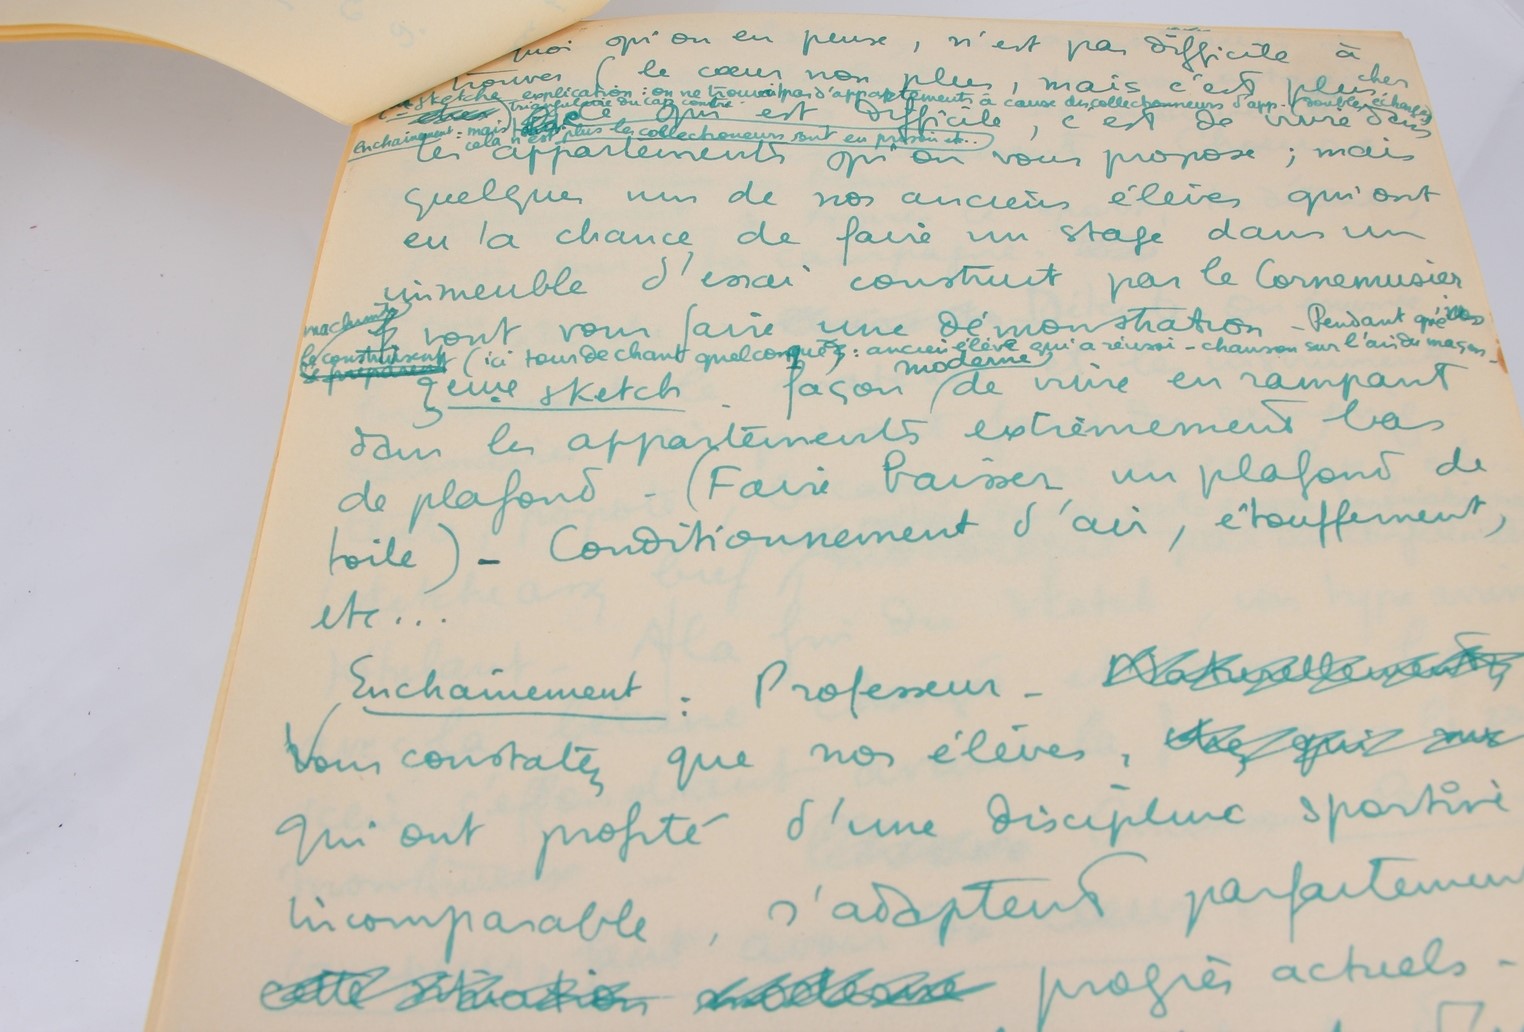 quoi qu'on en pense, n'est pas difficile à
trouver (le cœur non plus, mais c'est plus cher
sketche explication : on ne trouvait pas d'appartements à cause des collectionneurs d'app.
triangulaire du cap contre
ce qui est difficile, c'est de vivre dans
Enchaînement : mais cela n'est plus les collectionneurs sont en prison etc..
les appartements qu'on vous propose ; mais
quelques uns de nos anciens élèves qui ont
eu la chance de faire un stage dans un
immeuble d'essai construit par le Cornemusier
vont vous faire une démonstration - Pendant qu'ils
le construisent (ici tour de chant quelconque : ancien élève qui a réussi - chanson sur l'air du maçon -
2ème sketch - façon moderne de vivre en rampant
dans les appartements extrêmement bas
de plafond - (Faire baisser un plafond de
toile) - Conditionnement d'air, étouffement,
etc...
Enchaînement : Professeur - Naturellement,
Vous constatez que nos élèves, qui
qui ont profité d'une discipline sportive
incomparable, s'adaptent parfaitement
cette situation moderne progrès actuels -